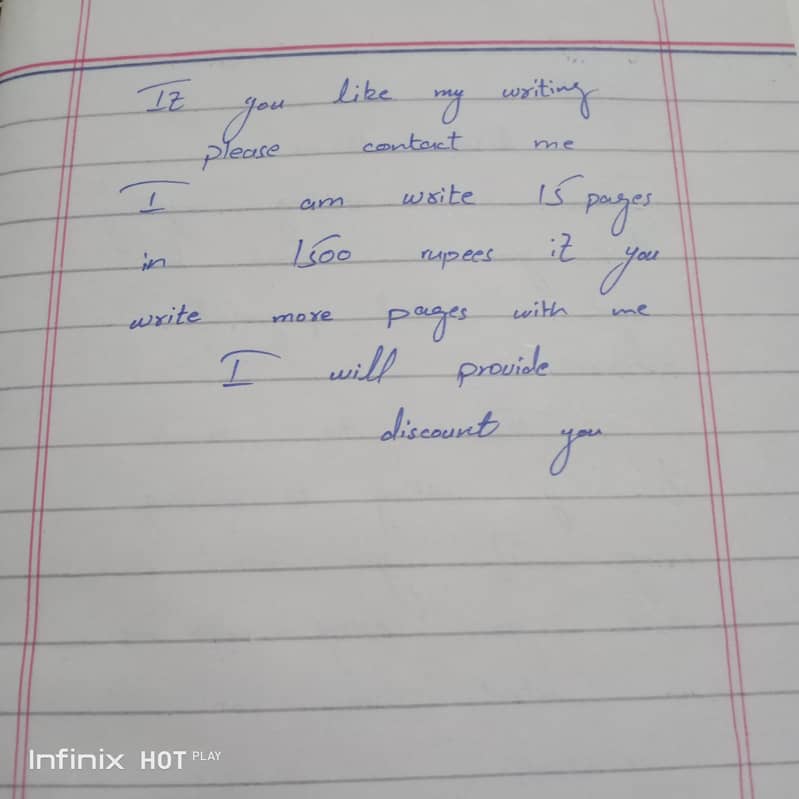 If you like my writing
please contact me
I am write 15 pages
in 1500 rupees if you
write more pages with me
I will provide
discount you
Infinix HOT PLAY